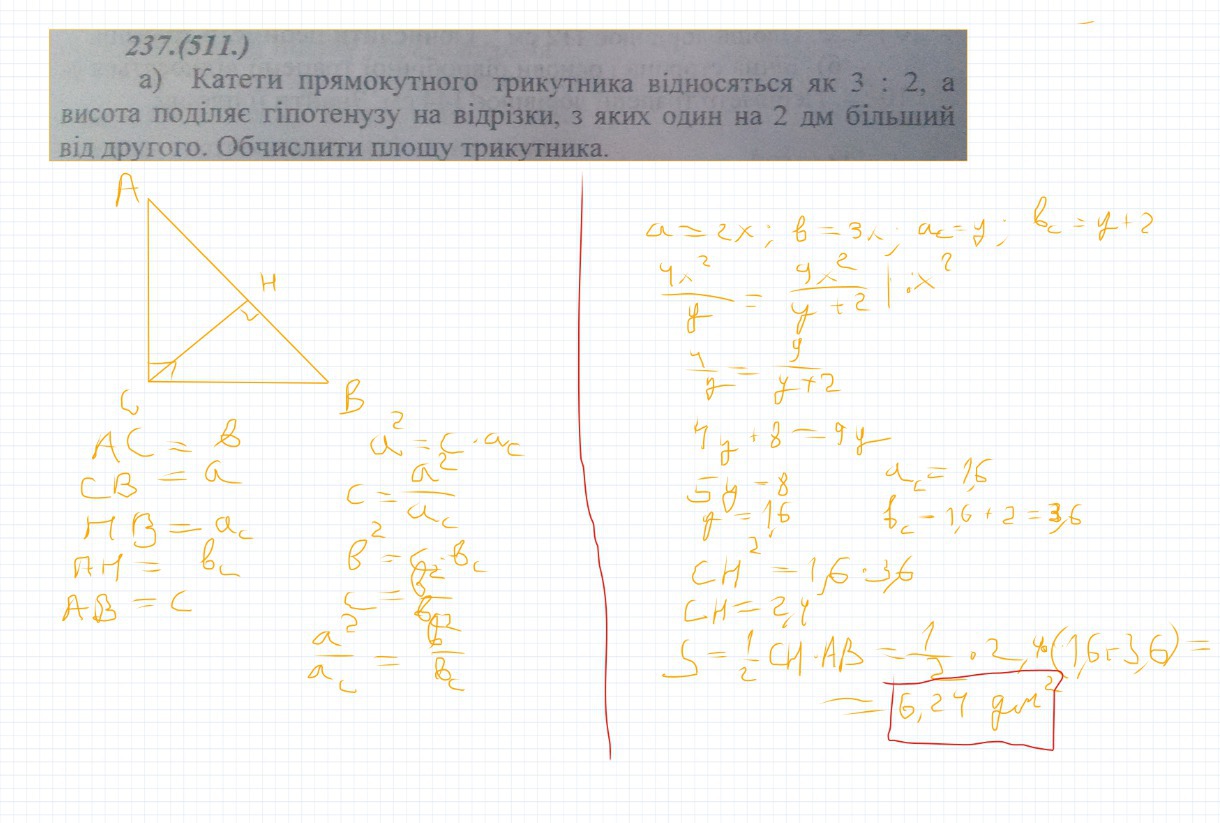 237.(511.)
а) Катети прямокутного трикутника відносяться як 3 : 2, а
висота поділяє гіпотенузу на відрізки, з яких один на 2 дм більший
від другого. Обчислити площу трикутника.
A
H
C
B
AC = b
CB = a
HB = a_c
AH = b_c
AB = c
a² = c · a_c
c = a²/a_c
b² = c · b_c
c = b²/b_c
a²/a_c = b²/b_c
a = 2x; b = 3x; a_c = y; b_c = y + 2
4x²/y = 9x²/(y + 2) | : x²
4/y = 9/(y + 2)
4y + 8 = 9y
5y = 8
y = 1,6
a_c = 1,6
b_c = 1,6 + 2 = 3,6
CH² = 1,6 · 3,6
CH = 2,4
S = 1/2 CH · AB = 1/2 · 2,4(1,6 + 3,6) =
= 6,24 дм²